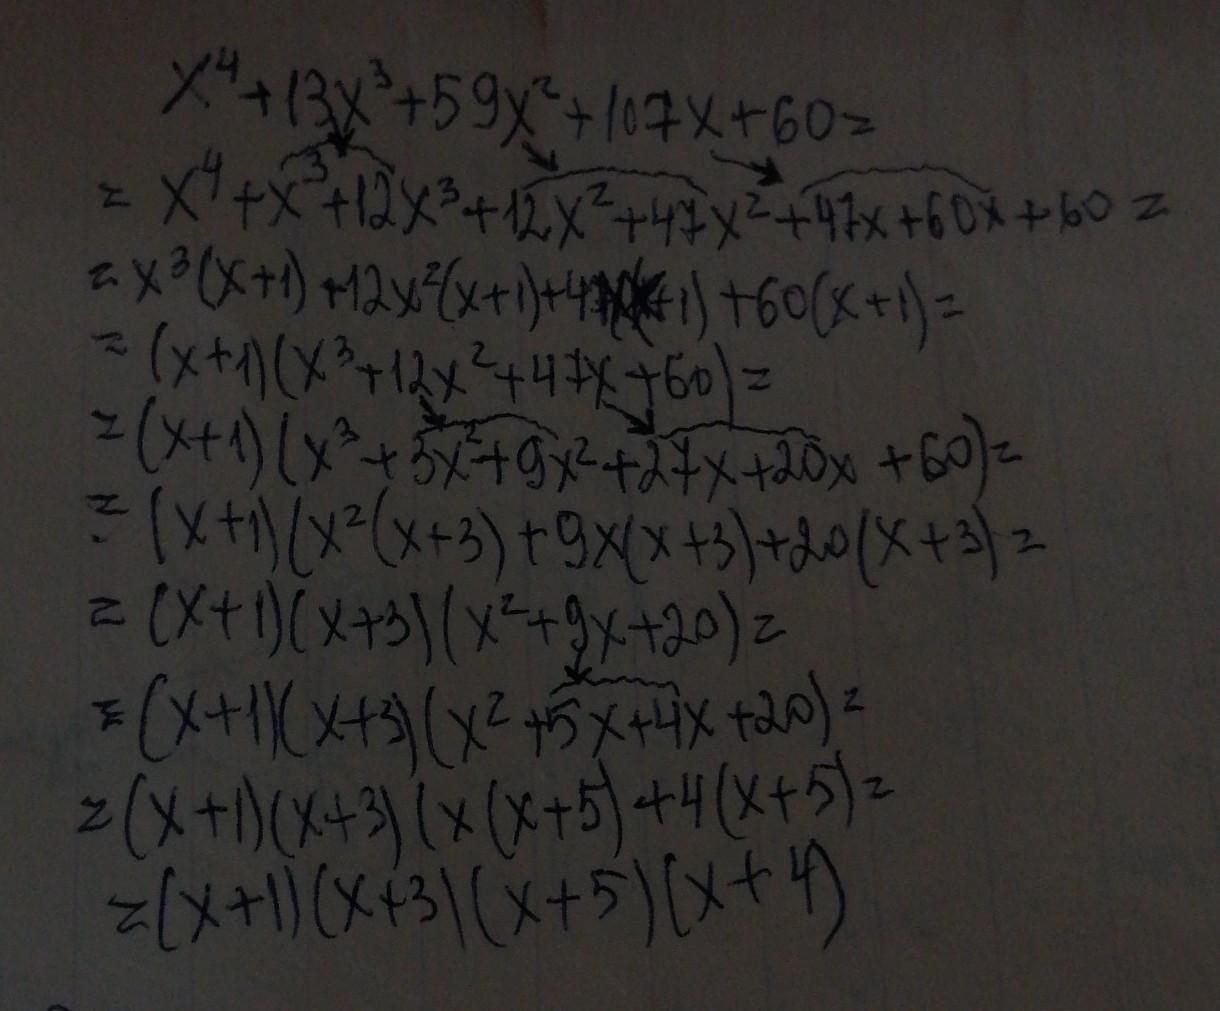 x⁴+13x³+59x²+107x+60=
= x⁴+x³+12x³+12x²+47x²+47x+60x+60=
= x³(x+1)+12x²(x+1)+47x(x+1)+60(x+1)=
= (x+1)(x³+12x²+47x+60)=
= (x+1)(x³+3x²+9x²+27x+20x+60)=
= (x+1)(x²(x+3)+9x(x+3)+20(x+3)=
= (x+1)(x+3)(x²+9x+20)=
= (x+1)(x+3)(x²+5x+4x+20)=
= (x+1)(x+3)(x(x+5)+4(x+5)=
= (x+1)(x+3)(x+5)(x+4)